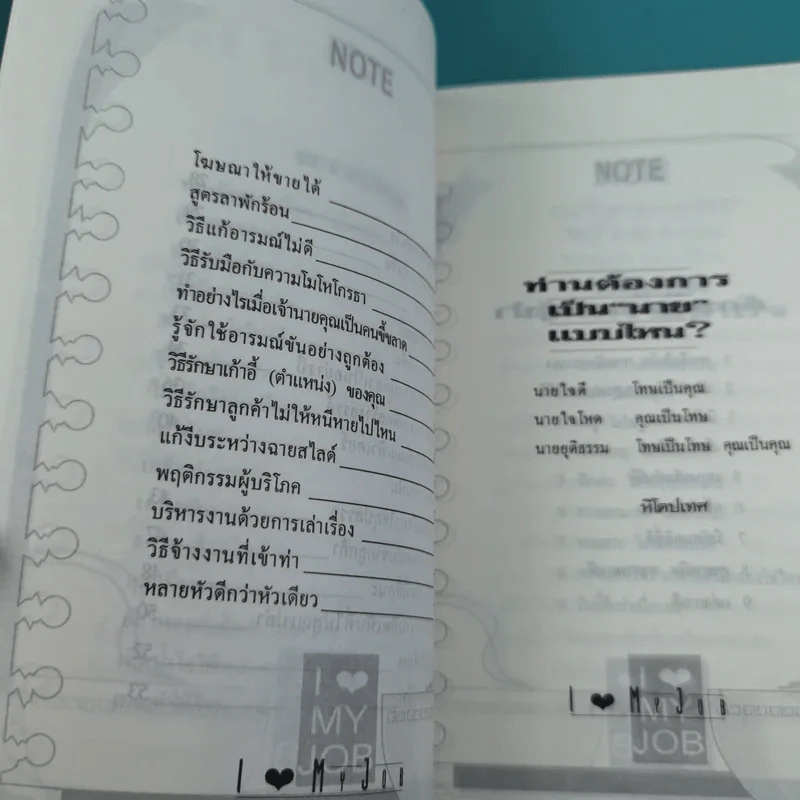 NOTE
โฆษณาให้ขายได้
สูตรลาพักร้อน
วิธีแก้อารมณ์ไม่ดี
วิธีรับมือกับความโมโหโกรธา
ทำอย่างไรเมื่อเจ้านายคุณเป็นคนขี้ขลาด
รู้จักใช้อารมณ์ขันอย่างถูกต้อง
วิธีรักษาเก้าอี้ (ตำแหน่ง) ของคุณ
วิธีรักษาลูกค้าไม่ให้หนีหายไปไหน
แก้งีบระหว่างฉายสไลด์
พฤติกรรมผู้บริโภค
บริหารงานด้วยการเล่าเรื่อง
วิธีจ้างงานที่เข้าท่า
หลายหัวดีกว่าหัวเดียว
I ❤ MY JOB
I ❤ MY JOB
NOTE
ท่านต้องการ
เป็น "นาย"
แบบไหน?
นายใจดี โทษเป็นคุณ
นายใจโหด คุณเป็นโทษ
นายยุติธรรม โทษเป็นโทษ คุณเป็นคุณ
หิโตปเทศ
I ❤ MY JOB
MY
JOB